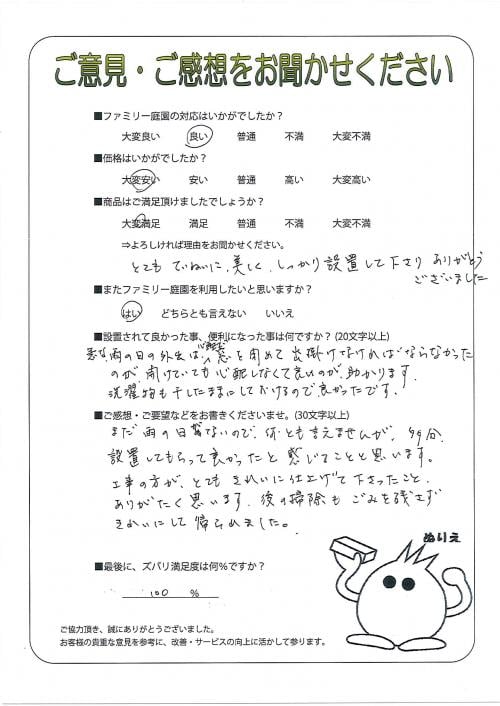 ご意見・ご感想をお聞かせください
■ファミリー庭園の対応はいかがでしたか？
大変良い 良い 普通 不満 大変不満
■価格はいかがでしたか？
大変安い 安い 普通 高い 大変高い
■商品はご満足頂けましたでしょうか？
大変満足 満足 普通 不満 大変不満
⇒よろしければ理由をお聞かせください。
とても ていねいに、美しく、しっかり設置して下さり ありがとう
ございました
■またファミリー庭園を利用したいと思いますか？
はい どちらとも言えない いいえ
■設置されて良かった事、便利になった事は何ですか？(20文字以上)
急な雨の日の外出は、窓を閉めて出掛けなければならなかった
のが、開けていても心配しなくて良いのが助かります。
洗濯物も干したままにしておけるので良かったです。
■ご感想・ご要望などをお書きくださいませ。(30文字以上)
まだ雨の日がないので、何とも言えませんが、多分、
設置してもらって良かったと感じることと思います。
工事の方が、とても きれいに仕上げて下さったこと、
ありがたく思います。後の掃除も ごみを残さず
きれいにして帰られました。
ぬりえ
■最後に、ズバリ満足度は何%ですか？
100 %
ご協力頂き、誠にありがとうございました。
お客様の貴重な意見を参考に、改善・サービスの向上に活かして参ります。